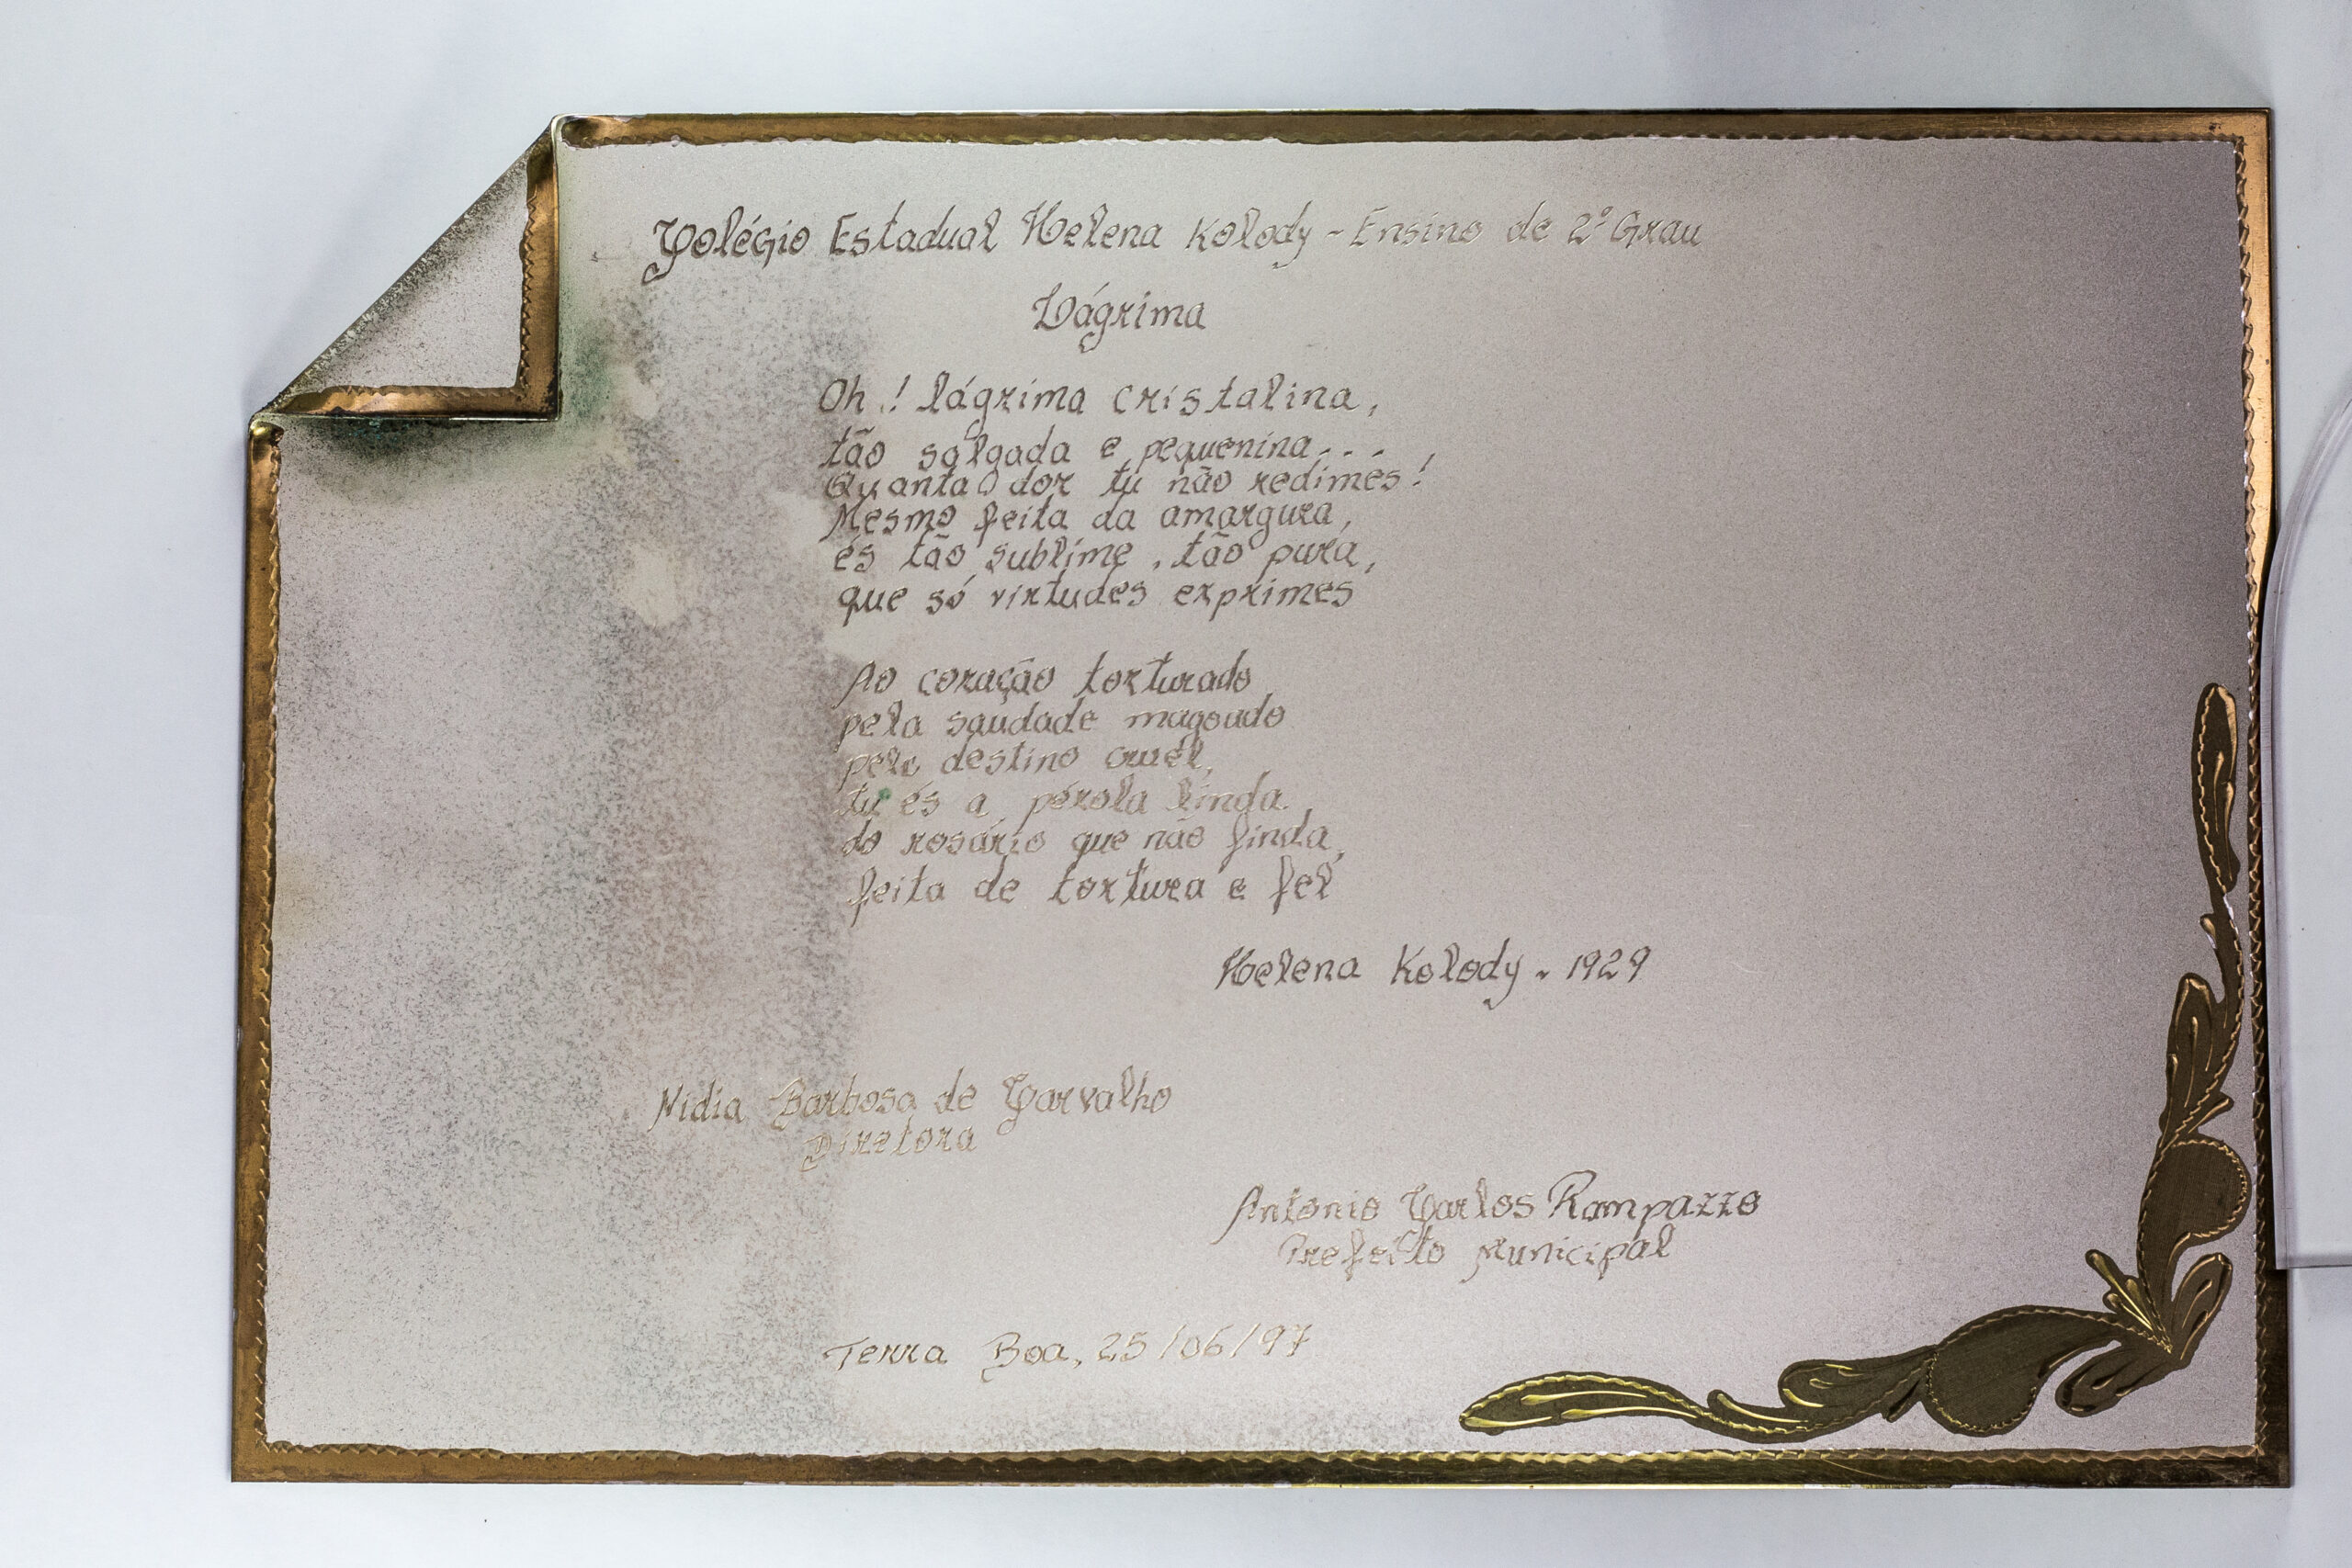 Colégio Estadual Helena Kolody - Ensino de 2º Grau
Lágrima
Oh! lágrima cristalina,
tão salgada e pequenina...
Quanta dor tu não redimes!
Mesmo feita da amargura,
és tão sublime, tão pura,
que só virtudes exprimes
Ao coração torturado
pela saudade magoado
pelo destino cruel,
tu és a pérola linda
do rosário que não finda,
feita de tortura e fel
Helena Kolody - 1929
Nidia Barbosa de Carvalho
Diretora
Antonio Carlos Rampazzo
Prefeito Municipal
Terra Boa, 25/06/97